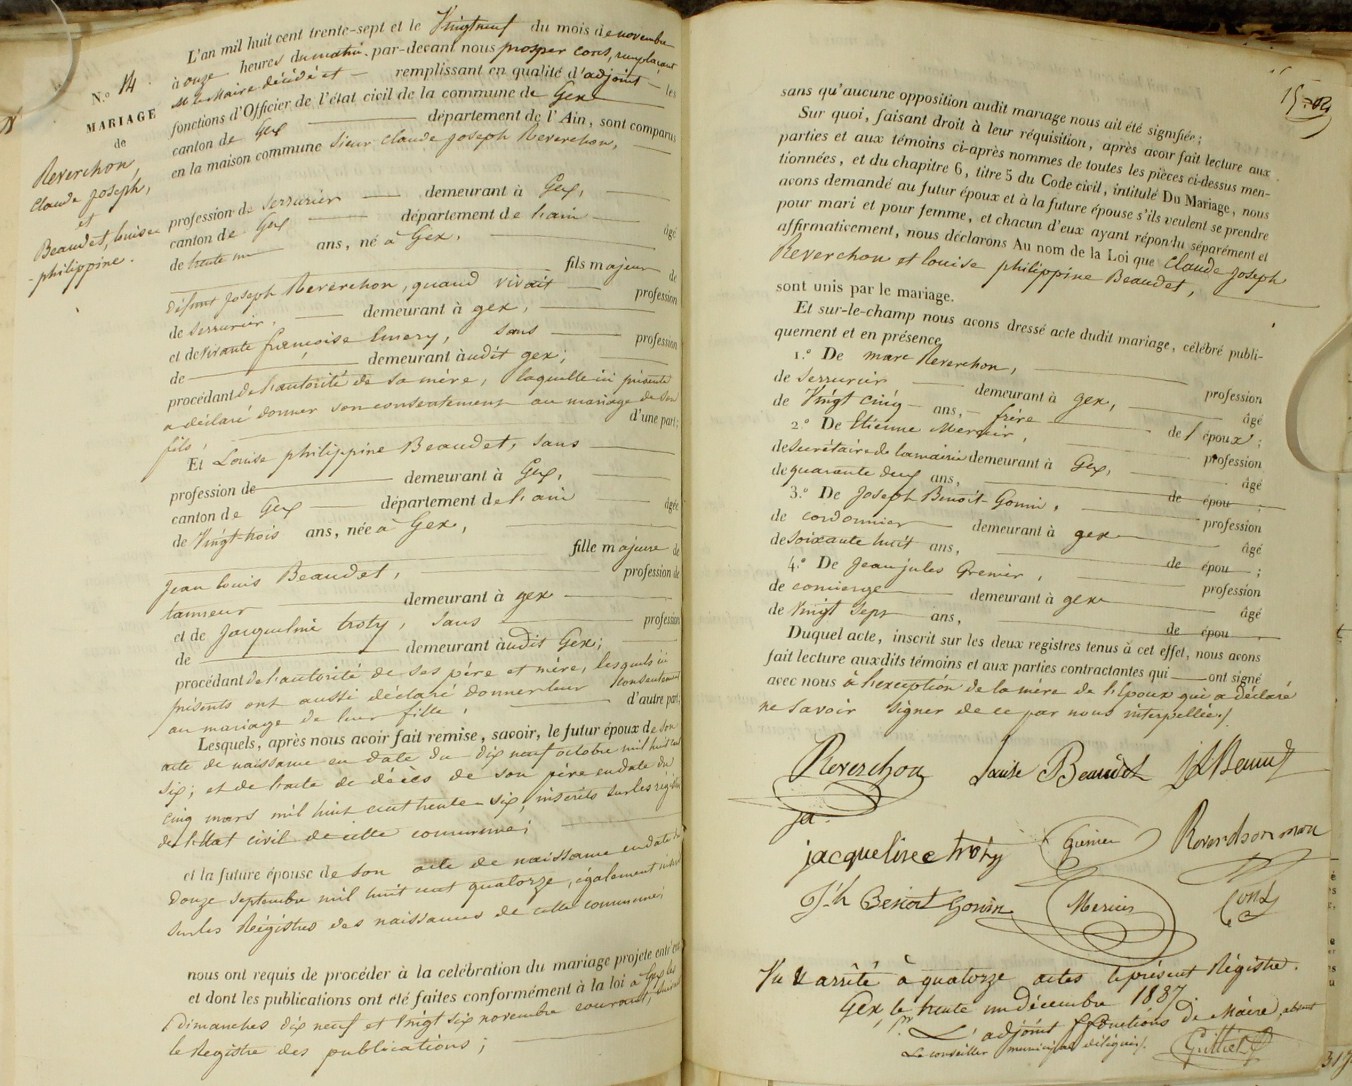 N.º 14
MARIAGE
de
Reverchon,
Claude Joseph,
et
Beaudet, Louise
-philippine.
L'an mil huit cent trente-sept et le Vingt neuf du mois de novembre
à onze heures du matin. par-devant nous prosper Conts, remplaçant
Mr le Maire décédé et — remplissant en qualité d'adjoint — les
fonctions d'Officier de l'état civil de la commune de Gex
canton de Gex département de l'Ain, sont comparus
en la maison commune Sieur Claude Joseph Reverchon,
profession de Serrurier demeurant à Gex,
canton de Gex département de l'ain âgé
de trente un ans, né à Gex,
fils majeur de
défunt Joseph Reverchon, quand vivait profession
de Serrurier, demeurant à gex,
et de vivante françoise Emery, sans profession
de demeurant à udit gex;
procédant de l'autorité de sa mère, laquelle ici présente
a déclaré donner son consentement au mariage de son
fils, d'une part;
Et Louise philippine Beaudet, sans
profession de demeurant à Gex,
canton de Gex département de l'ain âgée
de Vingt-trois ans, née à Gex,
fille majeure de
Jean Louis Beaudet, profession de
tanneur demeurant à gex
et de Jacqueline troty, sans profession
de demeurant à udit Gex;
procédant de l'autorité de ses père et mère, lesquels ici
présents ont aussi déclaré donner leur consentement
au mariage de leur fille, d'autre part;
Lesquels, après nous avoir fait remise, savoir, le futur époux de son
acte de naissance en date du dix neuf octobre mil huit cent
six; et de l'acte de décès de son père en date du
cinq mars mil huit cent trente-six, inscrits sur les régistres
de l'Etat civil de cette commune;
et la future épouse de son acte de naissance en date du
douze Septembre mil huit cent quatorze, également inscrit
sur les Régistres des naissances de cette commune;
nous ont requis de procéder à la celébration du mariage projeté entr'eux
et dont les publications ont été faites conformément à la loi à Gex les
dimanches dix neuf et Vingt six novembre courant, suivant
le Registre des publications;
sans qu'aucune opposition audit mariage nous ait été signifiée;
Sur quoi, faisant droit à leur réquisition, après avoir fait lecture aux
parties et aux témoins ci-après nommes de toutes les pièces ci-dessus men-
tionnées, et du chapitre 6, titre 5 du Code civil, intitulé Du Mariage, nous
avons demandé au futur époux et à la future épouse s'ils veulent se prendre
pour mari et pour femme, et chacun d'eux ayant répondu séparément et
affirmativement, nous déclarons Au nom de la Loi que Claude Joseph
Reverchon et Louise philippine Beaudet,
sont unis par le mariage.
Et sur-le-champ nous avons dressé acte dudit mariage, célébré publi-
quement et en présence
1.º De marc Reverchon, profession
de Serrurier demeurant à gex, âgé
de Vingt cinq ans, frère de l'époux;
2.º De Etienne Mercier, profession
de Secrétaire de la mairie demeurant à Gex, âgé
de quarante deux ans, de épou ;
3.º De Joseph Benoit-Gonin, profession
de cordonnier demeurant à gex âgé
de Soixante huit ans, de épou ;
4.º De Jean jules Grenier, profession
de concierge demeurant à gex âgé
de Vingt Sept ans, de épou
Duquel acte, inscrit sur les deux registres tenus à cet effet, nous avons
fait lecture auxdits témoins et aux parties contractantes qui ont signé
avec nous à l'exception de la mère de l'Epoux qui a déclaré
ne Savoir Signer de ce par nous interpellée.
Reverchon Louise Beaudet
ja
jacqueline troty Grenier Reverchon
J.h Benoit Gonin Mercier Conts
Vu & arrêté à quatorze actes le présent Régistre.
Gex, le trente un décembre 1837
Pr L'adjoint ff. fonctions de Maire, absent
Le conseiller municipal délégué.